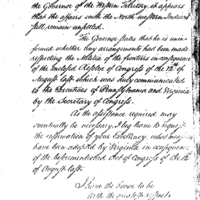 the Governor of the Western Territory, it appears
that the affairs with the North western Indians
still remain unsettled.
The Governor states that he is un-
informed whether any arrangements had been made
respecting the Militia of the frontiers in consequence
of the enclosed Resolve of Congress of the 12th of
August last which was duly communicated
to the Executives of Pennsylvania and Virginia
by the Secretary of Congress.
As the assistance required may
eventually be necessary, I beg leave to request
the information of your Excellency, what measures
have been adopted by Virginia in consequence
of the beforementioned Act of Congress of the 12th
of August last.
I have the honor to be
With the greatest respect